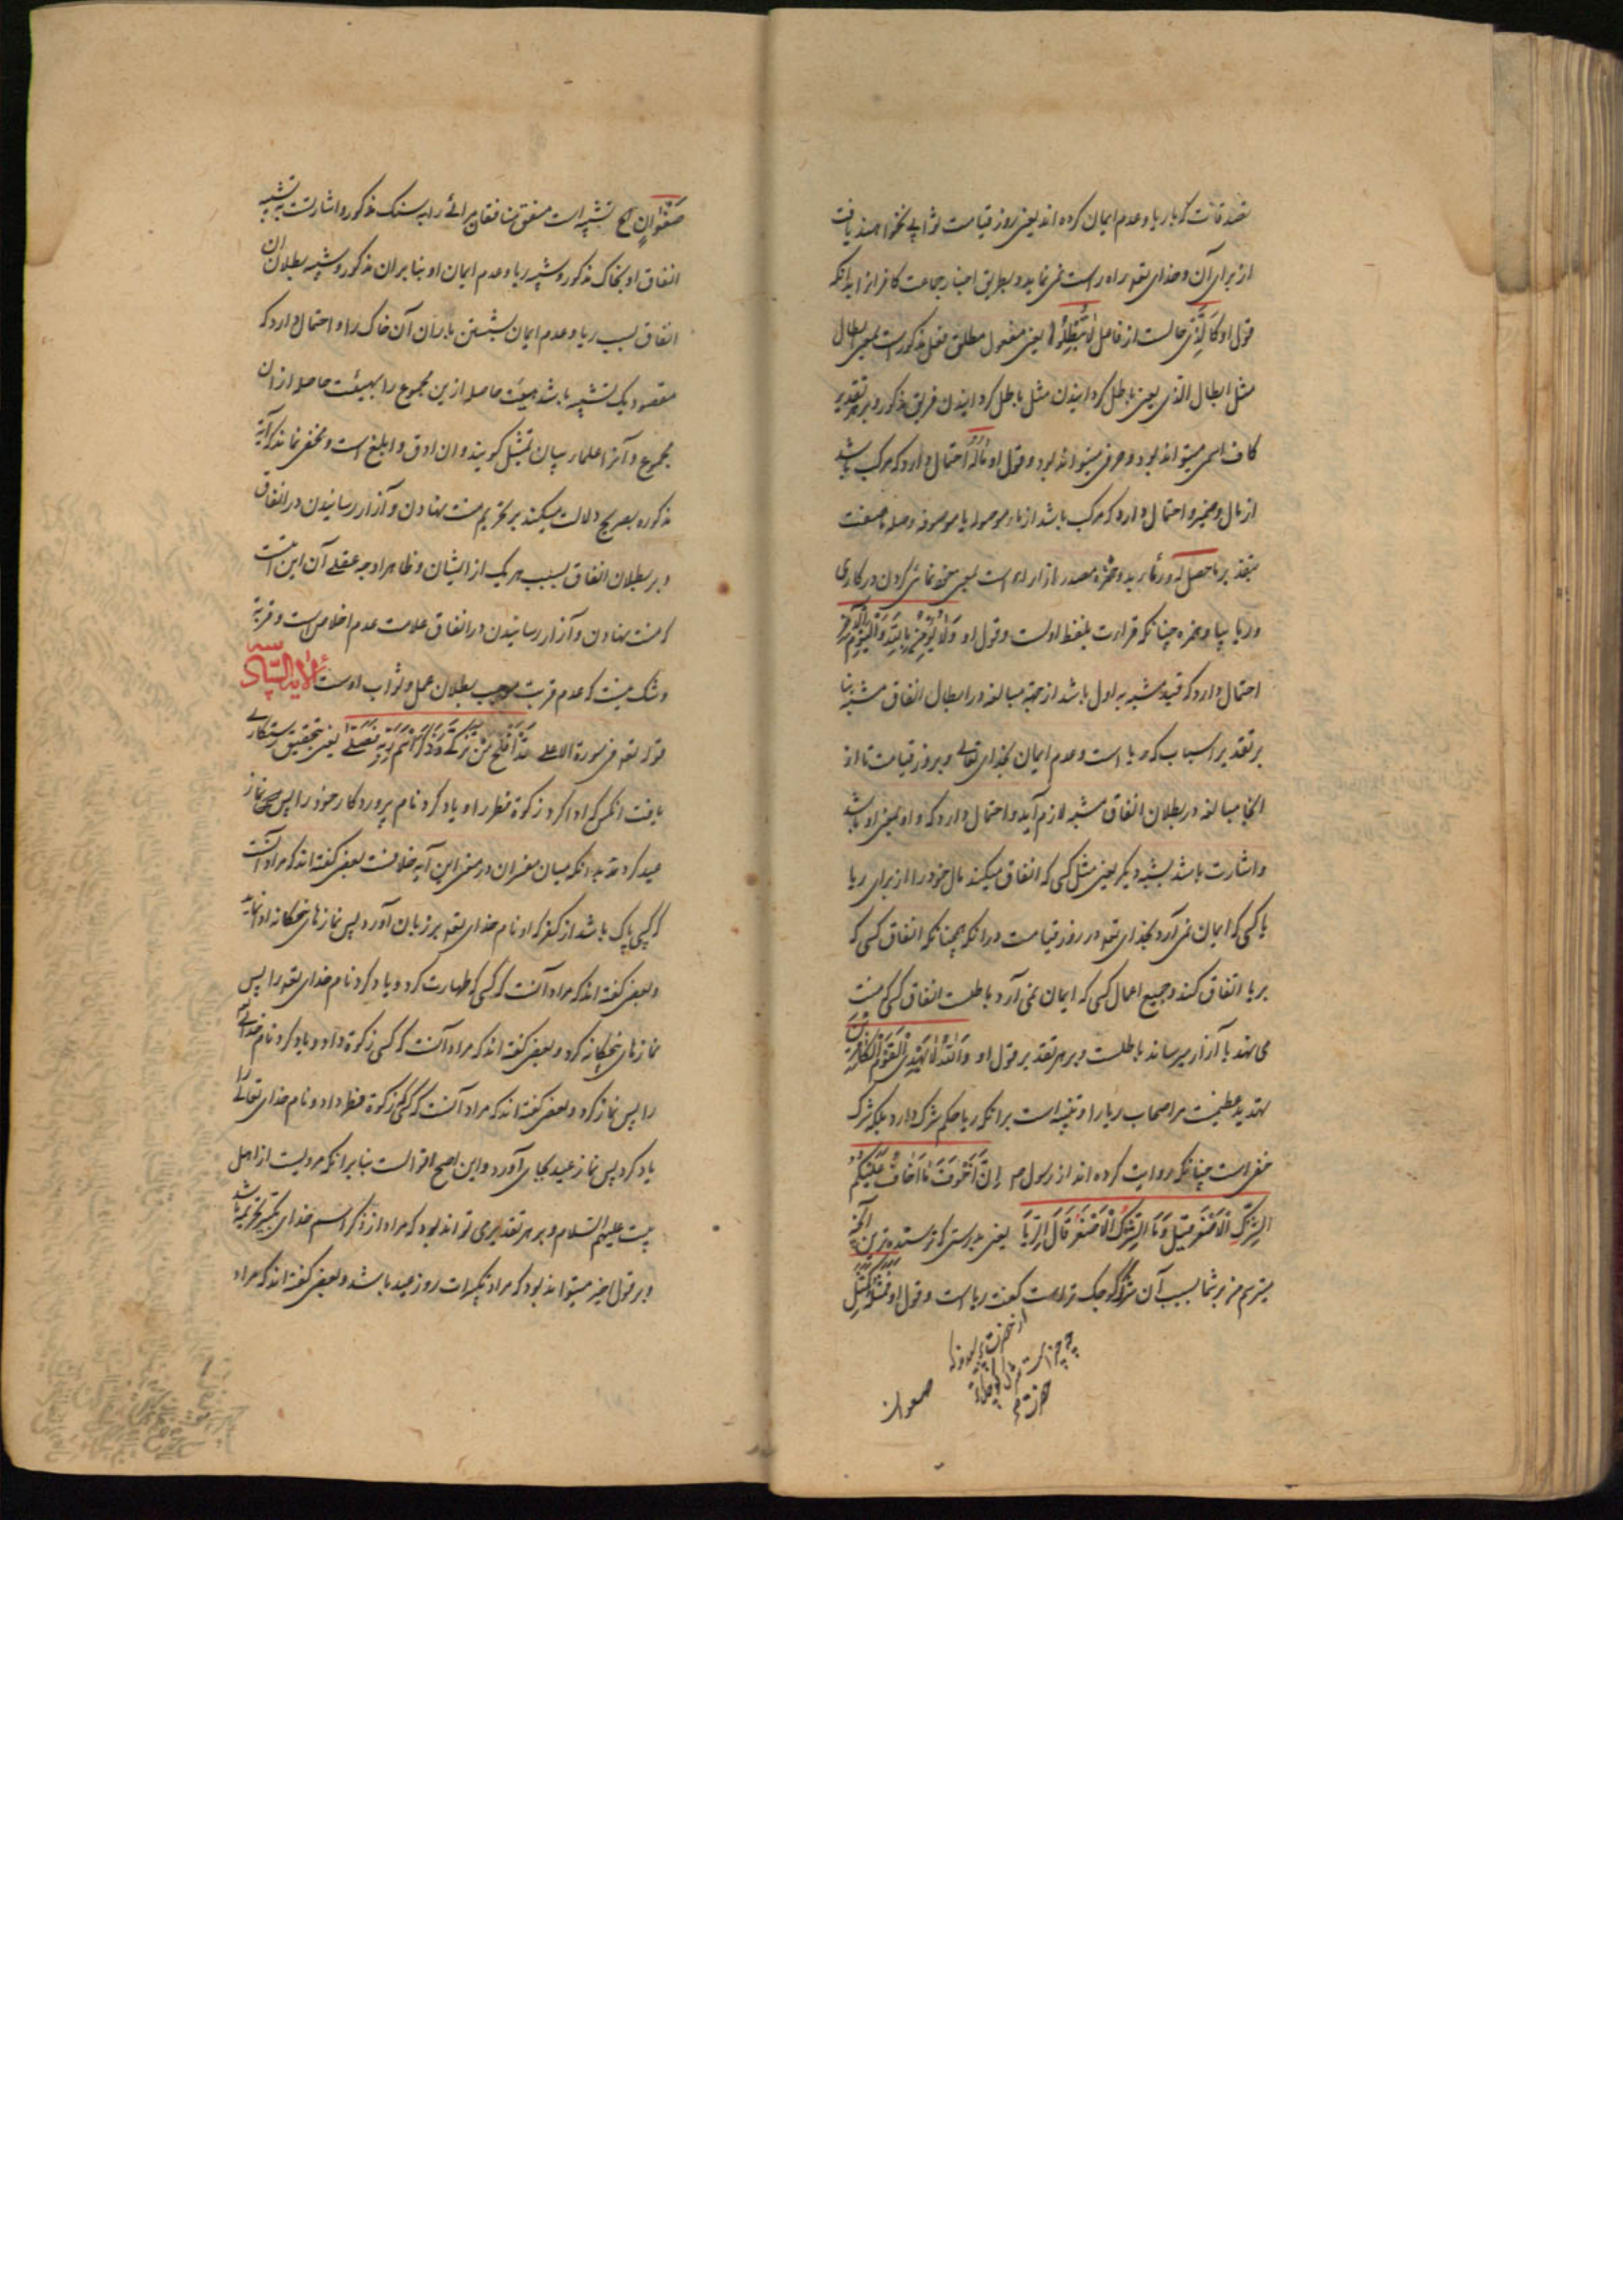 تصدقات که با ریا و عدم ایمان کرده اند یعنی روز قیامت ثوابی نخواهند یافت
از برای آن و خدای تعو راه راست نمی نماید و بطریق اجبار جماعت کافرانرا بدانکه
قول او کالذی حالست از فاعل لا تبطلوا یعنی مفعول مطلق فعل مذکورست یعنی ابطال
مثل ابطال الذی یعنی باطل کردانیدن مثل باطل کردانیدن فریق مذکور و بر هر تقدیر
کاف اسمی میتواند بود و حرفی میتواند بود و قول او ماله احتمال دارد که مرکب باشد
از مال و ضمیر و احتمال دارد که مرکب باشد از ماء موصوله یا موصوفه و صله یا صفت
بتقدیر ما حصل له و رئاء بر یک همزه مصدر است یعنی خود نمائی کردن در کاری
و ریا بیا و همزه چنانکه قراءت بلفظ اوست و قول او ولا یؤمن بالله والیوم الآخر
احتمال دارد که قید مشبه به اول باشد از جهة مبالغه در ابطال انفاق مشبه بنا
بر تقدیر اسباب که ریا است و عدم ایمان بخدای تعالی و بروز قیامت تا از
انجا مبالغه در بطلان انفاق مشبه لازم آید و احتمال دارد که واو بمعنی او باشد
و اشارت باشد بتشبیه دیکر یعنی مثل کسی که انفاق میکند مال خود را از برای ریا
یا کسی که ایمان نمی آرد بخدای تعو و روز قیامت و دانکه همچنانکه انفاق کسی که
بریا انفاق کند و جمیع اعمال کسی که ایمان نمی آرد باطلست انفاق کسی که منت
می نهد یا آزار میرساند باطلست و بر هر تقدیر قول او والله لا یهدی القوم الکافرین
تهدید عظیمست مر اصحاب ریا را و تنبیه است بر انکه ریا حکم شرک دارد بلکه شرک
خفی است چنانکه روایت کرده اند از رسول ص ان اخوف ما اخاف علیکم
الشرک الاصغر قیل وما الشرک الاصغر قال الریا یعنی بدرستی که ترسنده ترین آنچه
میترسم من بر شما بسبب آن شرک کوچک تر است گفت ریا است و قول او فمثله کمثل
چه چیز است شرک کوچکتر
حضرت
صفوان
صفوان الخ تشبیه است منفق منافق مرائی را بسنک مذکور و اشارتست به تشبیه
انفاق او بخاک مذکور و تشبیه ریا و عدم ایمان او بباران مذکور و تشبیه بطلان ان
انفاق بسبب ریا و عدم ایمان بشستن باران آن خاک را و احتمال دارد که
مقصود یک تشبیه باشد هیئت حاصله ازین مجموع را بهیئت حاصله از ان
مجموع و آنرا علماء بیان تمثیل کویند و ان ادق و ابلغ است و مخفی نماند که آیه
مذکوره بصریح دلالت میکند بر تحریم منت نهادن و آزار رسانیدن در انفاق
و بر بطلان انفاق بسبب هر یک از ایشان و ظاهرا وجه عقلی آن این است
که منت نهادن و آزار رسانیدن در انفاق علامت عدم اخلاص است و قربة
و شک نیست که عدم قربت موجب بطلان عمل و ثواب اوست الآیة السادسة
قوله تعو فی سورة الاعلی قد افلح من تزکی وذکر اسم ربه فصلی یعنی بتحقیق رستکاری
یافت انکس که ادا کرد زکوة فطر را و یاد کرد نام پروردکار خود را پس نماز
عید کرد بدانکه میان مفسران در معنی این آیه خلافست بعضی گفته اند که مراد آنست
که کسی پاک باشد از کفر که او نام خدای تعو بر زبان آورد پس نمازهای پنجکانه ادا نماید
و بعضی گفته اند که مراد آنست که کسی که طهارت کرد و یاد کرد نام خدای تعو را پس
نمازهای پنجکانه کرد و بعضی گفته اند که مراد آنست که کسی زکوة داد و یاد کرد نام خدای
را پس نماز کرد و بعضی گفته اند که مراد آنست که کسی که زکوة فطر داد و نام خدای تعالی را
یاد کرد پس نماز عید بجای آورد و این اصح اقوالست بنا بر انکه مرویست از اهل
بیت علیهم السلام و بر هر تقدیری تواند بود که مراد از ذکر اسم خدای تکبیر تحریمه باشد
و بر قول اخیر میتواند بود که مراد تکبیرات روز عید باشد و بعضی گفته اند که مراد